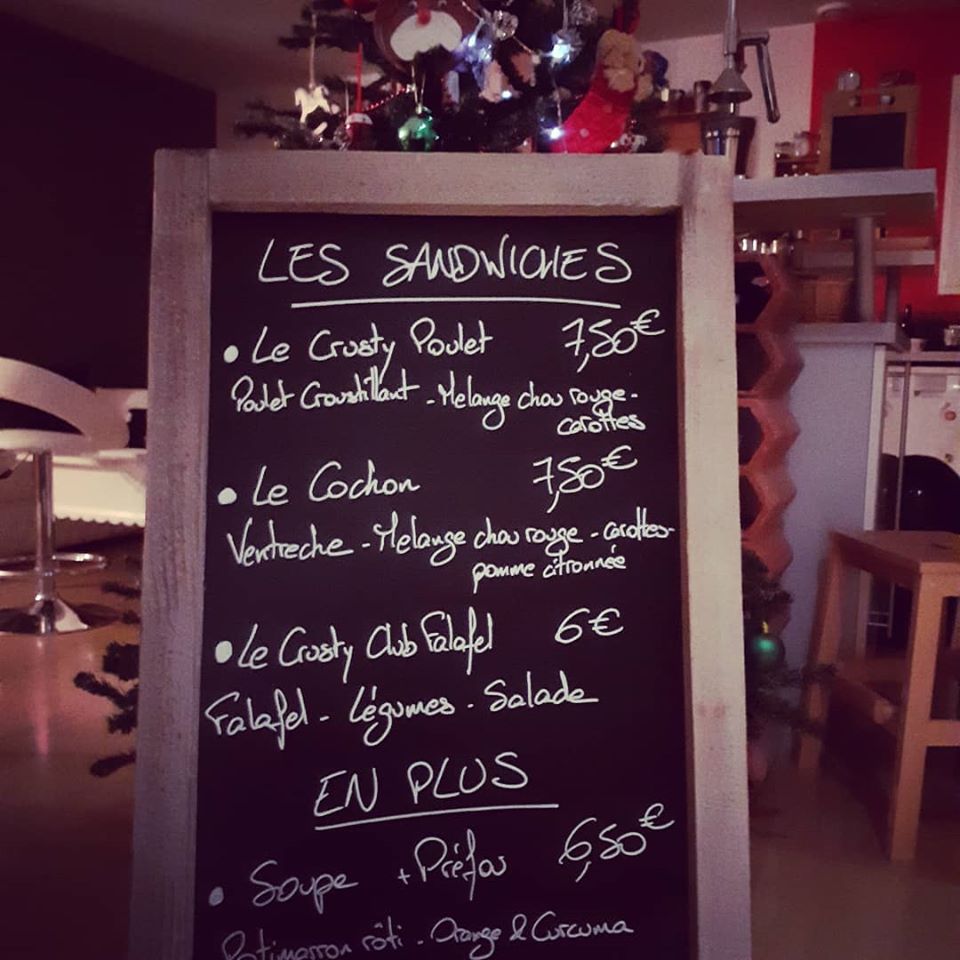 LES SANDWICHES
• Le Crusty Poulet 7,50€
Poulet Croustillant - Melange chou rouge -
carottes
• Le Cochon 7,50€
Ventreche - Melange chou rouge - carottes -
pomme citronnée
• Le Crusty Club Falafel 6€
Falafel - Légumes - Salade
EN PLUS
• Soupe + Préfou 6,50€
Potimarron rôti - Orange & Curcuma